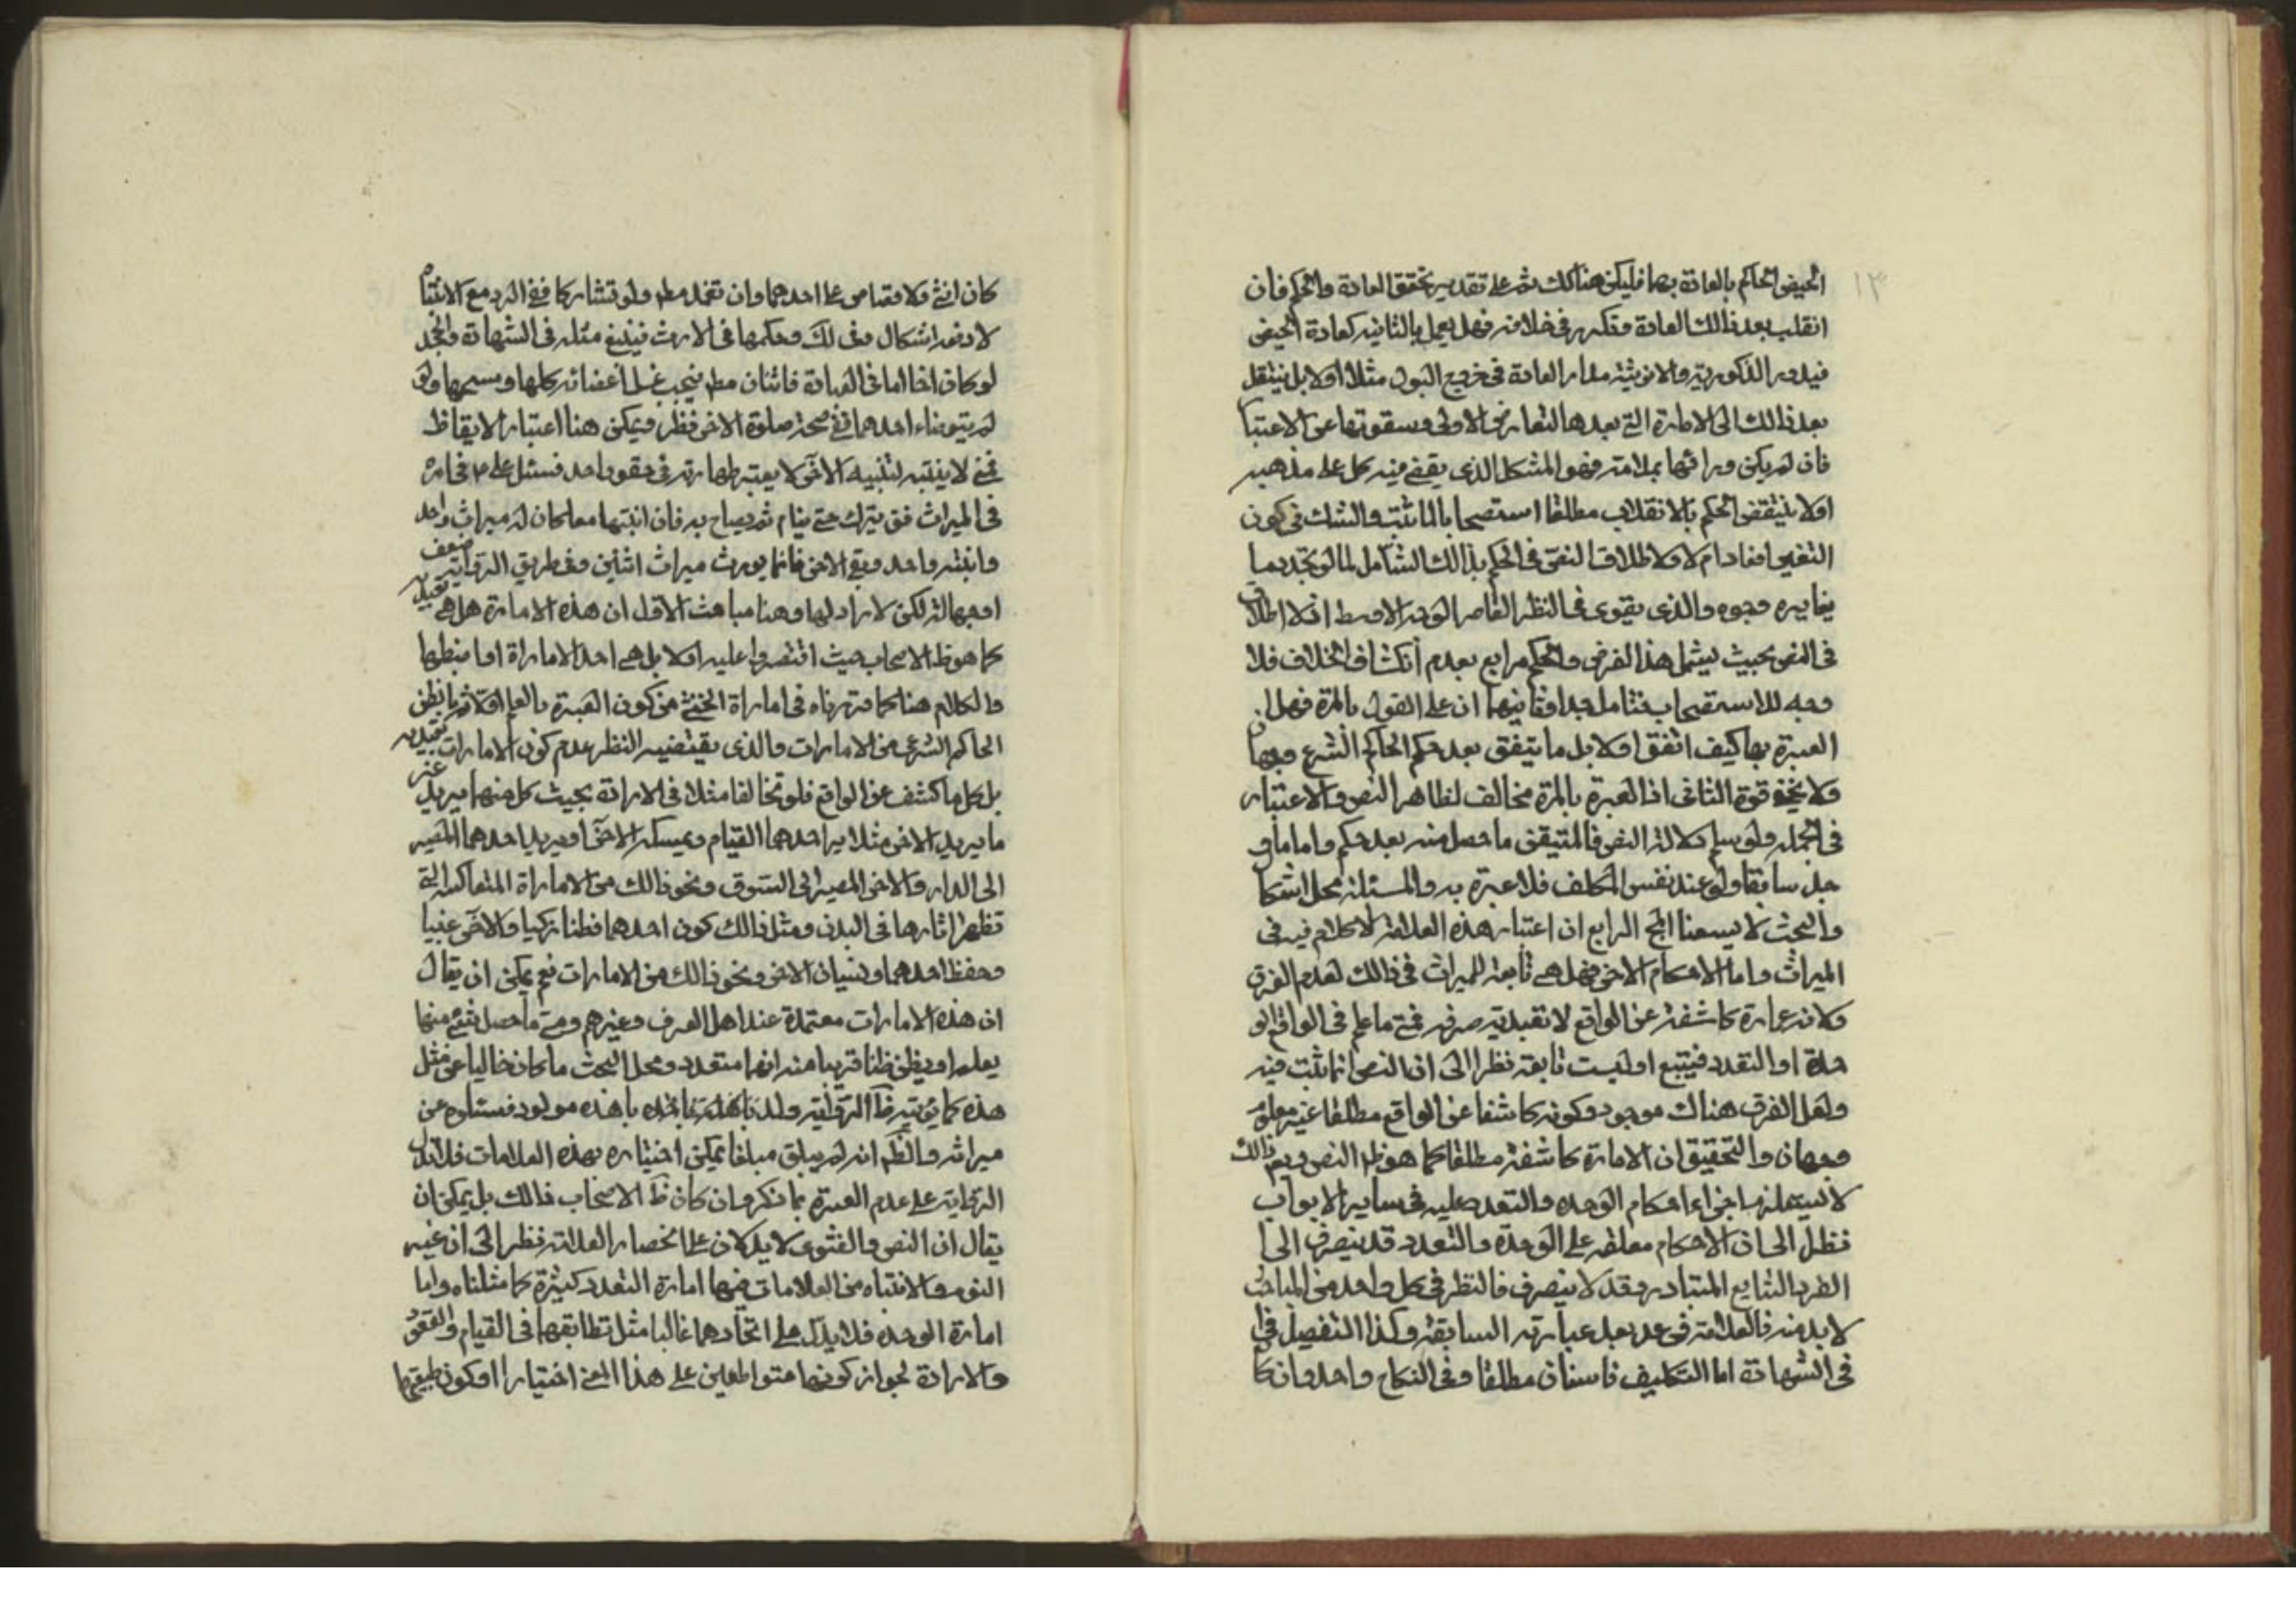 ١٣
الحيض الحاكم بالعادة بها فليكن هنا كك ثم على تقدير تحقق العادة والحكم فان
انقلب بعد ذالك العادة وتكرر في خلافه فهل يعمل بالثانيه كعادة الحيض
فيدور الذكوريه والانوثيته مدار العادة في خروج البول مثلا اولا بل ينتقل
بعد ذالك الى الامارة التي بعدها لتعارض الاولى وسقوتها عن الاعتبا
فان لم يكن ورائها علامته فهو المشكل الذى يقضى فيه كل على مذهبه
اولا ينتقض الحكم بالانقلاب مطلقا استصحابا لما ثبت والشك في كون
التغير افعا دام لا ولاطلاق النص في الحكم بذالك الشامل لما لو تجدد بما
يغايره وجوه والذى يقوى في النظر القاصر الوجه الاوسط اذلا اطلاق
في النص بحيث يشمل هذا الفرض والحكم مراعى بعدم انكشاف الخلاف فلا
وجه للاستصحاب فتامل جدا وثانيهما ان على القول بالمرة فهل
العبرة بها كيف اتفق اولا بل ما يتفق بعد حكم الحاكم الشرع وجهان
ولا يخفى قوة الثانى اذ العبرة بالمرة مخالف لظاهر النص والاعتبار
في الجمله ولو سلم دلالته النص فالمتيقن ما حصل منه بعد حكم واما ما و
جد سابقا ولو عند نفس المكلف فلا عبرة به والمسئلة محل اشكا
والبحث لا يسعنا الج الرابع ان اعتبار هذه العلامة لا كلام فيه في
الميراث واما الاحكام الاخر فهل هى تابعة للميراث في ذالك لعدم الفرق
ولانه عمارة كاشفة عن الواقع لا تقبديته صرفه فمتى ما علم في الواقع الو
حدة او التعدد فيتبع او ليست تابعة نظرا الى ان النص انما ثبت فيه
ولعل الفرق هناك موجود وكونه كاشفا عن الواقع مطلقا غير معلوم
وجهان والتحقيق ان الامارة كاشفة مطلقا كما هو ظ النص وبعد ذالك
لا يستلزم اجزاء احكام الوحده والتعدد عليه في ساير الابواب
نظرا الى ان الاحكام معلقه على الوحدة والتعدد قد ينصرف الى
الفرد الشايع المتبادر وقد لا ينصرف فالنظر في كل واحد من المباحث
لابد منه فالعلامة في عد بعد عبارته السابقة وكذا التفصيل في
في الشهادة اما التكليف فاسنان مطلقا وفى النكاح واحد وان كا
كان انثى ولا قصاص على احدهما وان تعمد مط ولو تشاركا ففى الرد مع الانتبا
لا دفعه اشكال وفى لك وحكمها في الارث فينبغ مثله في الشهادة والحجد
لو كان اخا اما في العبادة فاثنان مط فيجب غسل اعضائه كلها ومسحها ولو
لم يتوضاء احدهما ففى صحة صلوة الاخر نظر ويمكن هنا اعتبار الايقاظ
فمتى لا ينتبه لتنبيه الاخر لا يعتبر طهارته في حقو واحد فسئل على م في امره
في الميراث فق يترك حتى ينام ثم يصاح به فان انتبها معا كان له ميراث واحد
وانتبه واحد وبقى الاخر فانما يورث ميراث اثنين وفى طريق الرواية ضعف
اوجهالة لكن لا راد لها وهنا مباحث الاول ان هذه الامارة هل هى تعبديه
كما هو ظ الاصحاب حيث اقتصروا عليه اولا بل هى احد الامارة او اضبطها
والكلام هنا كما قررناه في امارة الخنثى من كون العبرة بالعلم او ما يظن
الحاكم الشرعى من الامارات والذى يقتضيه النظر عدم كون الامارات تعبديه
بل كل ما كشف عن الواقع فلو تخالفا مثلا في الارادة بحيث كل منهما يريد غير
ما يريد الاخر مثلا يراحدهما القيام ويمسكه الاخر او يريد احدهما المصير
الى الدار والاخر المصير الى السوق ونحو ذالك من الامارة المتعاكسه التى
تظهر اثارها في البدن ومثل ذالك كون احدهما فطنا زكيا والاخر غبيا
وحفظ احدهما ونسيان الاخر ونحو ذالك من الامارات نعم يمكن ان يقال
ان هذه الامارات معتمدة عند اهل العرف وغيرهم ومتى ما حصل شئ منها
يعلم او يظن ظنا قريبا منه انها متعدد ومحل البحث ما كان خاليا عن مثل
هذه كما يؤيده ظ الرواية ولد باهذه مولود فستلوم عن
ميراثه والظ انه لم يبلق مبلغا يمكن اختباره بهذه العلامات فلا تدل
الرواية على عدم العبرة بما ذكر وان كان ظ الاصحاب ذالك بل يمكن ان
يقال ان النص والفتوى لا يدلان على انحصار العلامة نظرا الى ان غير
النوم والانتباه من العلامات فيها امارة التعدد كثيرة كما مثلناه واما
امارة الوحده فلا يدل على اتحادهما غالبا مثل تطابقهما في القيام والقعود
والارادة لجواز كونهما متواطعين على هذا المعنى اختيارا او كون طبيعتهما